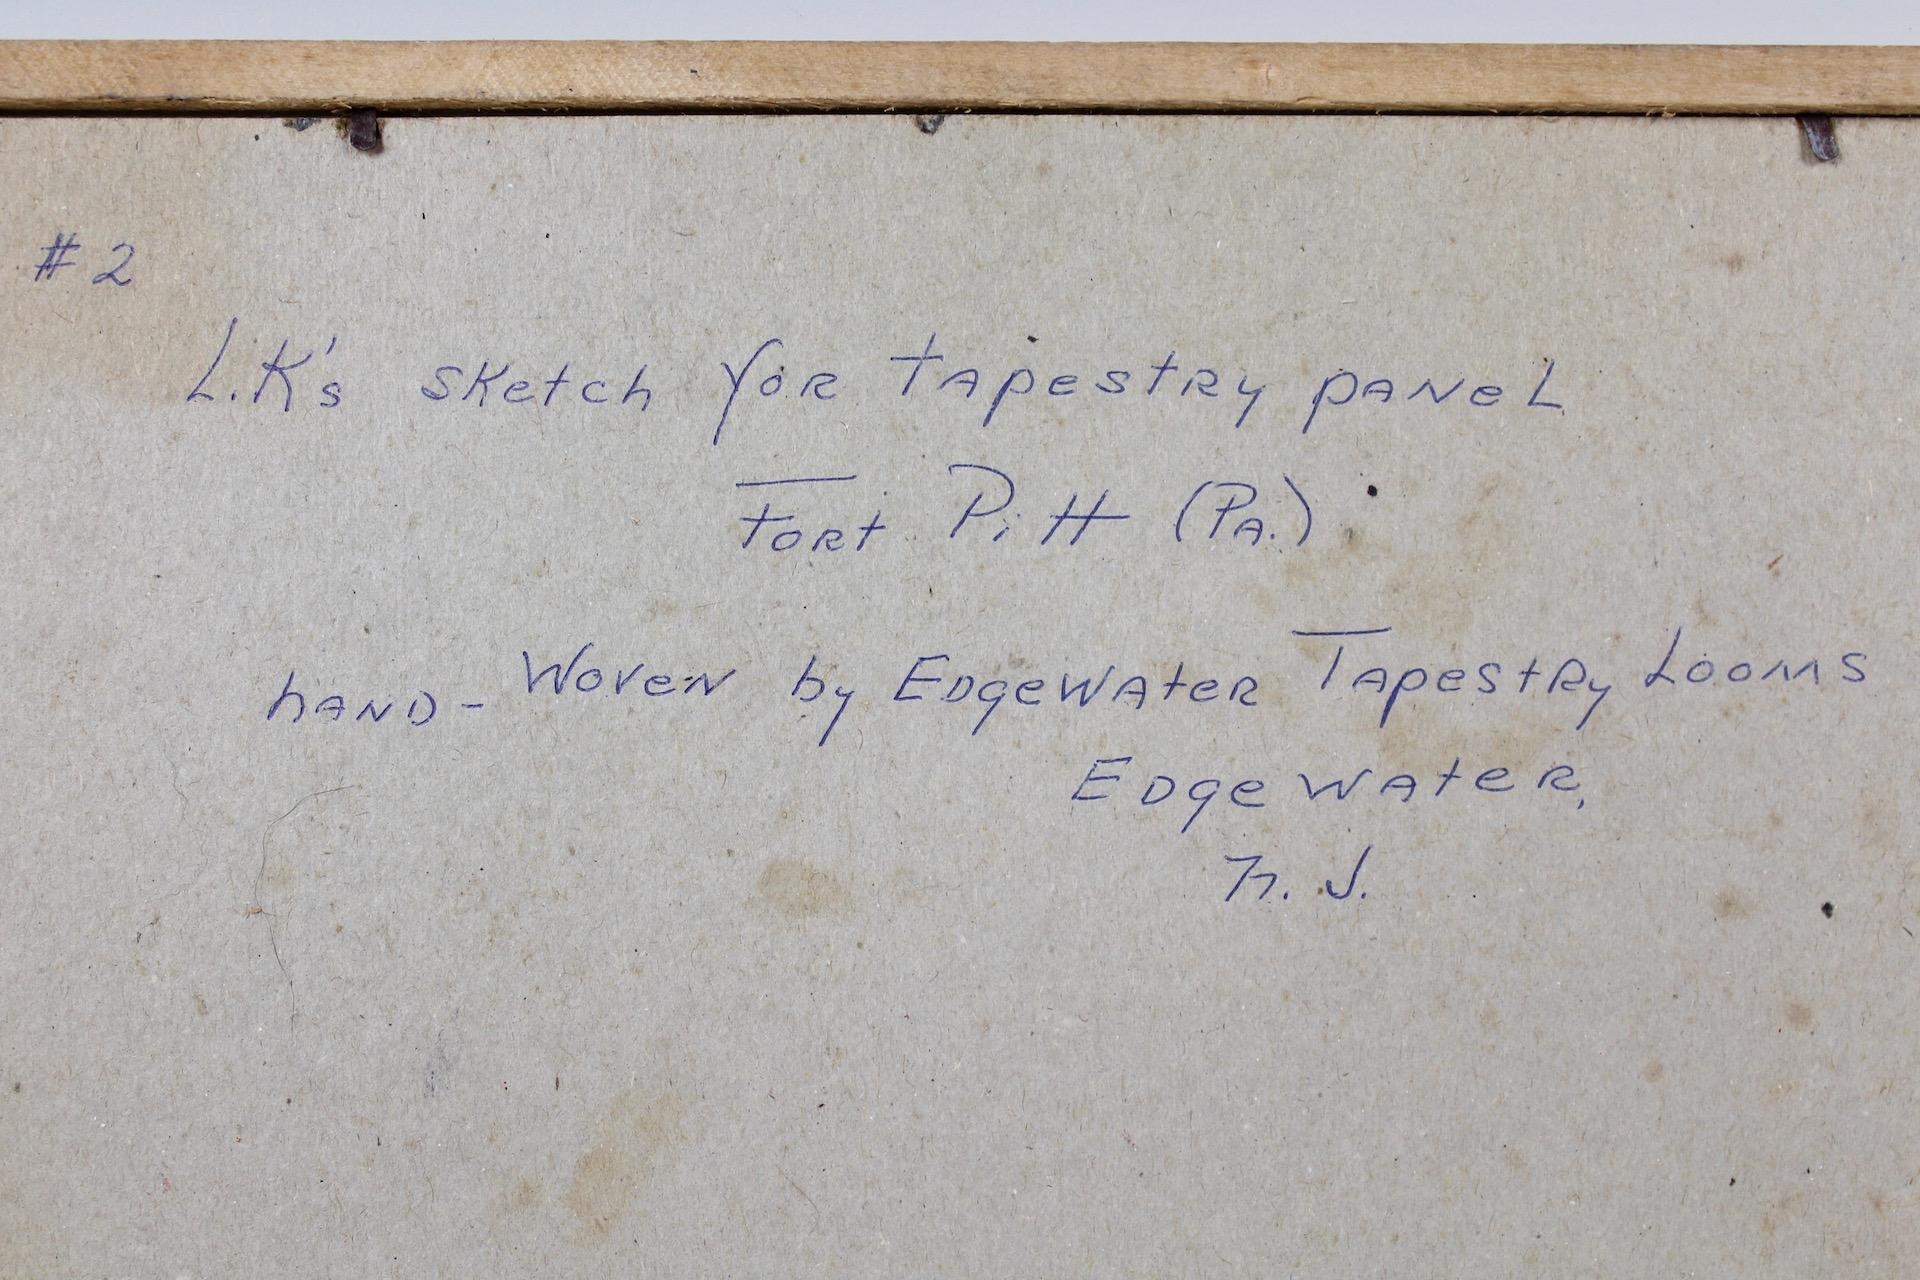 #2
L.K's sketch for tapestry panel
Fort Pitt (Pa.)
hand-Woven by Edgewater Tapestry Looms
Edgewater,
N. J.